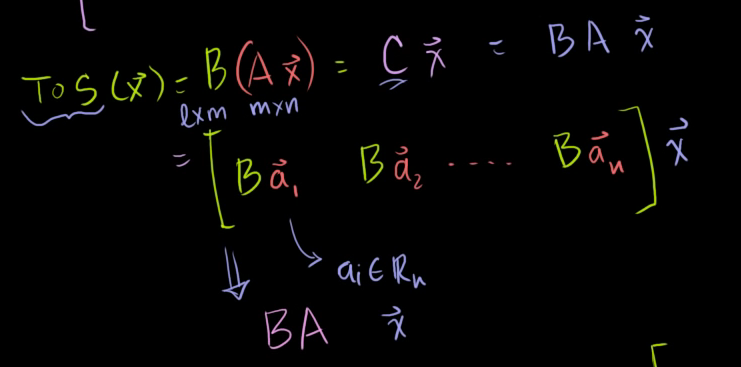 T∘S(x⃗) = B(Ax⃗) = Cx⃗ = BAx⃗
l×m m×n
= [Ba⃗₁ Ba⃗₂ ..... Ba⃗ₙ] x⃗
⇓ ↘ aᵢ∈ℝₙ
BA x⃗